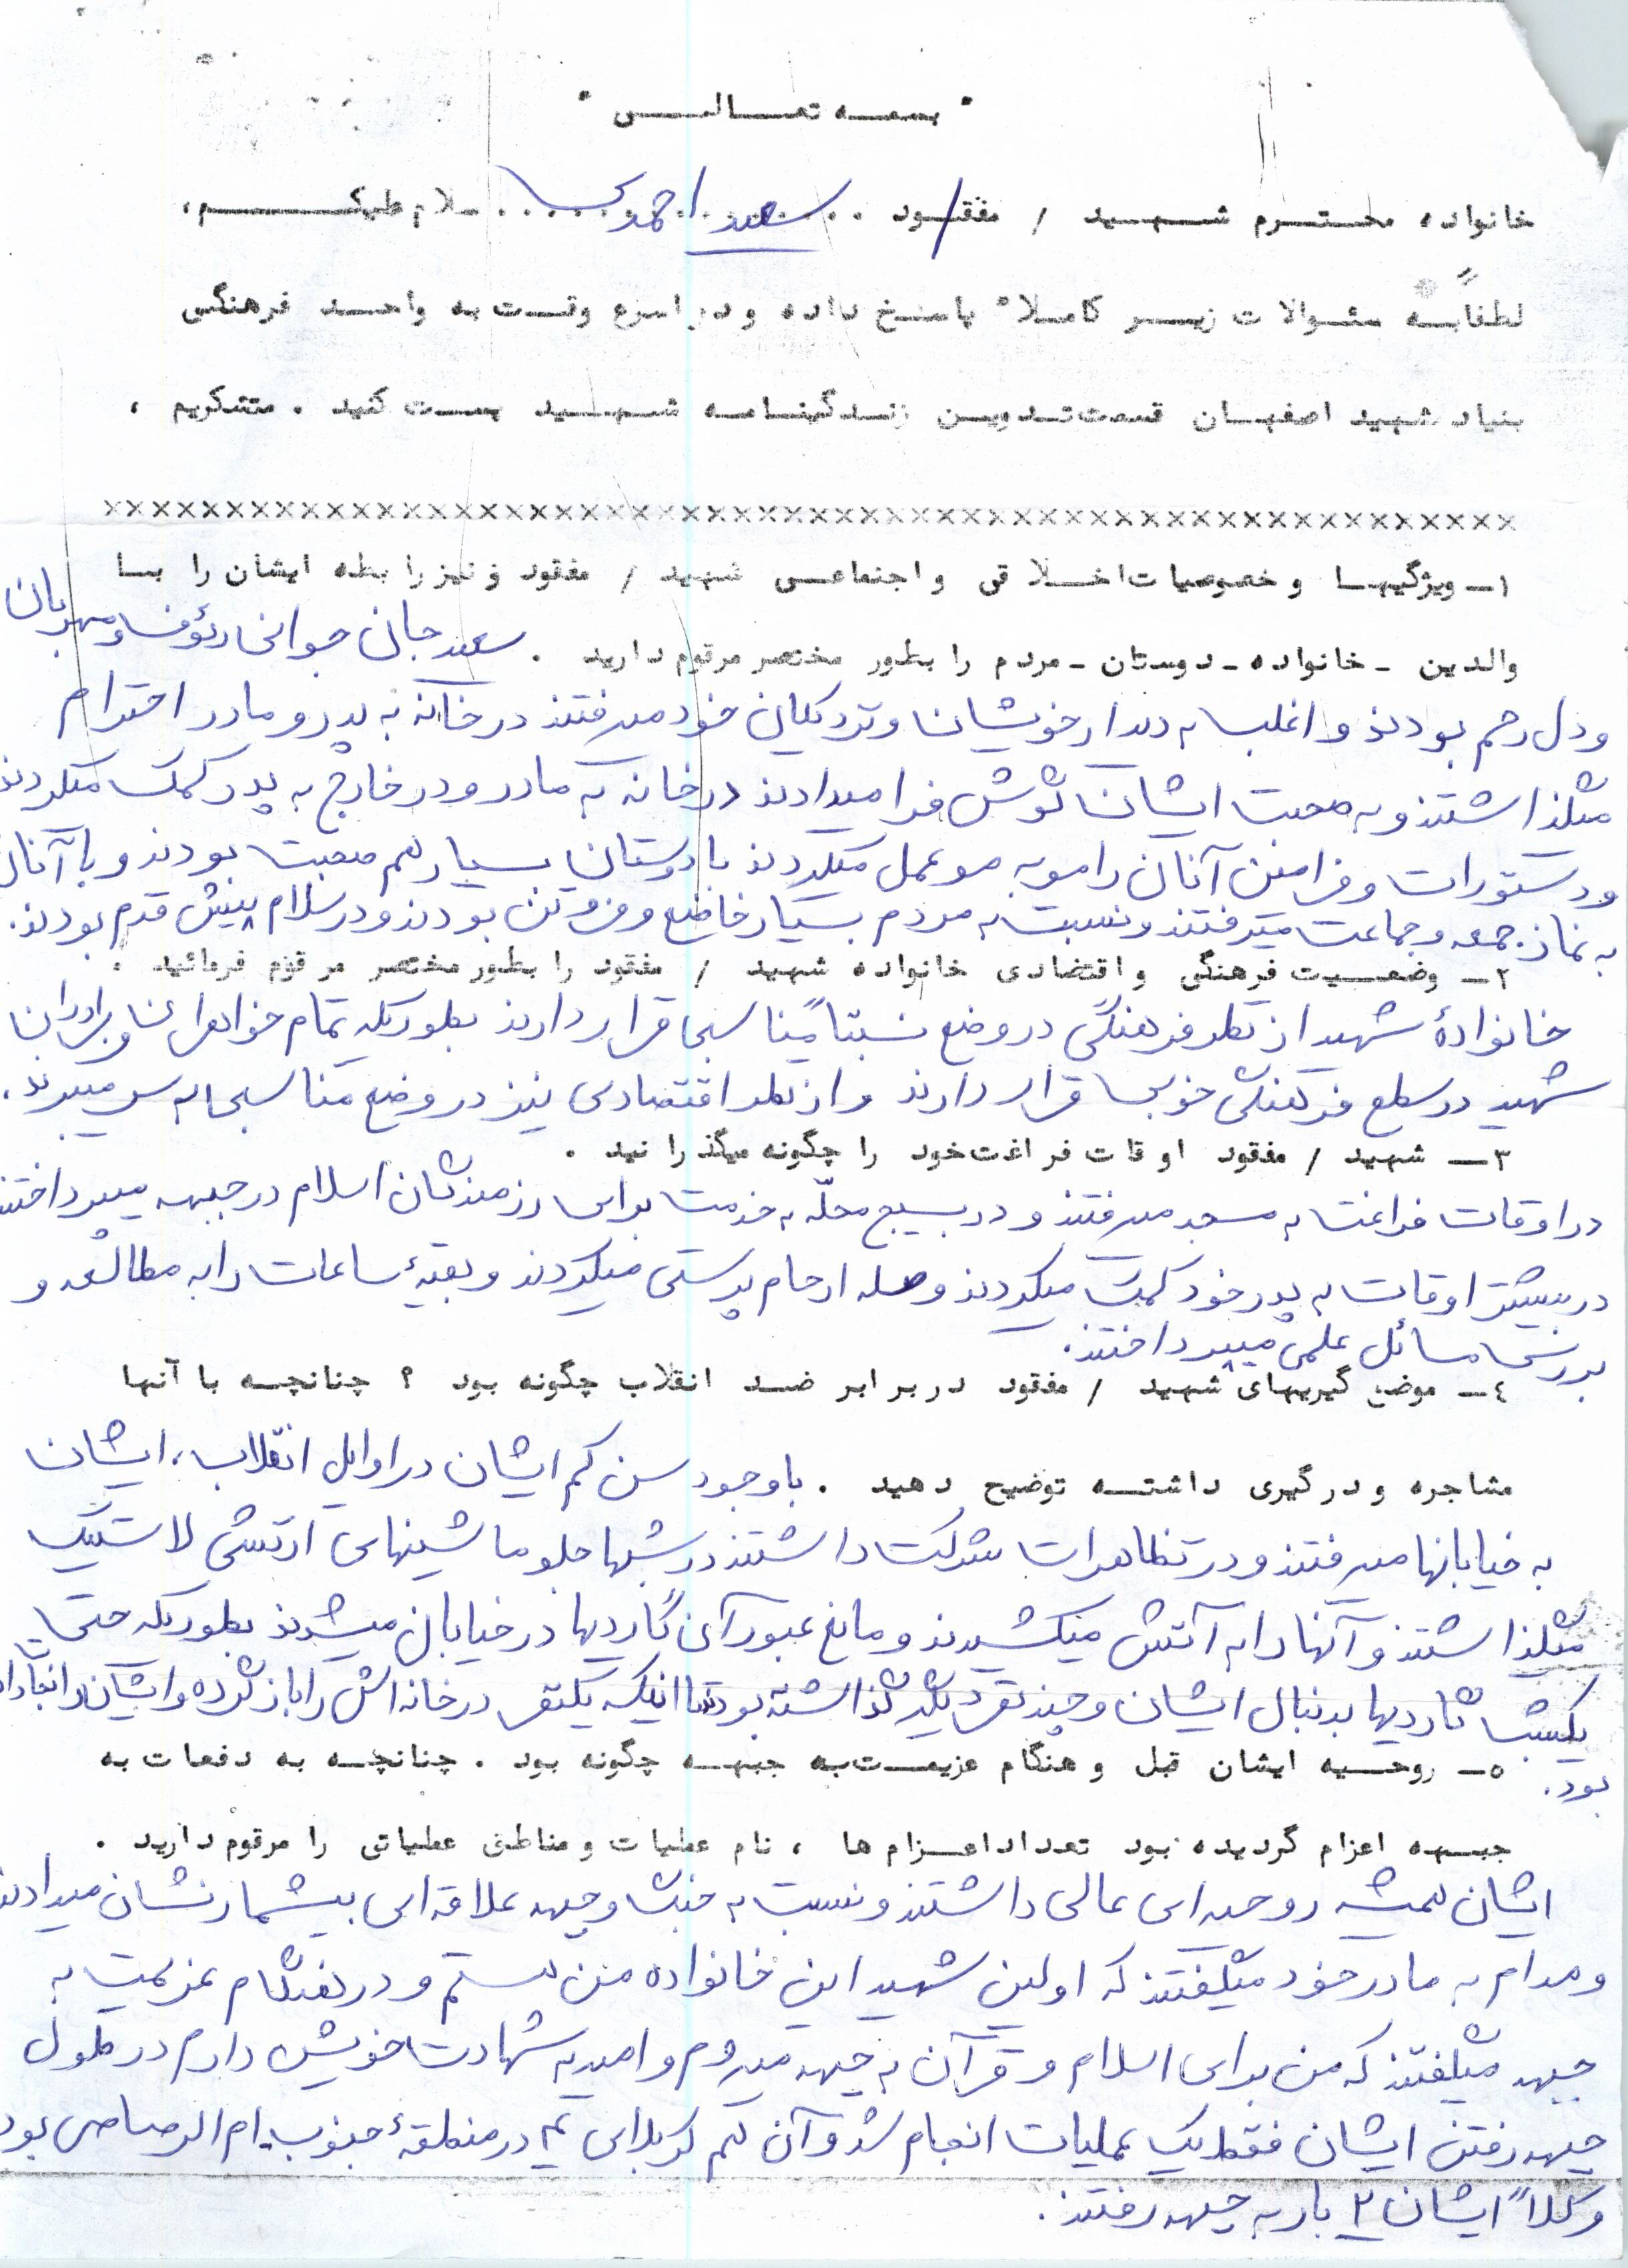 " بسمه تعالی "
خانواده محترم شهید / مفقود سعید احمدی سلام علیکم،
لطفاً به سئوالات زیر کاملاً پاسخ داده و در اسرع وقت به واحد فرهنگی
بنیاد شهید اصفهان قسمت تدوین زندگینامه شهید پست کنید . متشکریم ،
××××××××××××××××××××××××××××××××××××××××××××××××××××××××
۱ـ ویژگیها و خصوصیات اخلاقی و اجتماعی شهید / مفقود و نیز رابطه ایشان را با
والدین ـ خانواده ـ دوستان ـ مردم را بطور مختصر مرقوم دارید . سعید جان جوانی رئوف و مهربان
و دل رحم بودند و اغلب به دیدار خویشان و نزدیکان خود میرفتند در خانه به پدر و مادر احترام
میگذاشتند و به صحبت ایشان گوش فرا میدادند در خانه به مادر و در خارج به پدر کمک میکردند
و دستورات و فرامین آنان را مو به مو عمل میکردند با دوستان بسیار هم صحبت بودند و با آنان
به نماز جمعه و جماعت میرفتند و نسبت به مردم بسیار خاضع و فروتن بودند و در سلام پیش قدم بودند.
۲ـ وضعیت فرهنگی و اقتصادی خانواده شهید / مفقود را بطور مختصر مرقوم فرمائید .
خانوادهٔ شهید از نظر فرهنگی در وضع نسبتاً مناسبی قرار دارند بطوریکه تمام خواهران و برادران
شهید در سطح فرهنگی خوبی قرار دارند و از نظر اقتصادی نیز در وضع مناسبی به سر میبرند.
۳ـ شهید / مفقود اوقات فراغت خود را چگونه میگذرانید .
در اوقات فراغت به مسجد میرفتند و در بسیج محلّه به خدمت برای رزمندگان اسلام در جبهه میپرداختند
در بیشتر اوقات به پدر خود کمک میکردند و صله ارحام پرستی میکردند و بقیهٔ ساعات را به مطالعه و
بررسی مسائل علمی میپرداختند.
٤ـ موضع گیریهای شهید / مفقود در برابر ضد انقلاب چگونه بود ؟ چنانچه با آنها
مشاجره و درگیری داشته توضیح دهید . با وجود سن کم ایشان در اوایل انقلاب، ایشان
به خیابانها میرفتند و در تظاهرات شرکت داشتند در شبها جلو ماشینهای ارتشی لاستیک
میگذاشتند و آنها را به آتش میکشیدند و مانع عبور آن گاردیها در خیابان میشدند بطوریکه حتی
یکشب گاردیها بدنبال ایشان و چند نفر دیگر گذاشته بودند تا اینکه یکنفر در خانه اش را باز کرده و ایشان را نجات داده
بود.
۵ـ روحیه ایشان قبل و هنگام عزیمت به جبهه چگونه بود . چنانچه به دفعات به
جبهه اعزام گردیده بود تعداد اعزام ها ، نام عملیات و مناطق عملیاتی را مرقوم دارید .
ایشان همیشه روحیه ای عالی داشتند و نسبت به جنگ و جبهه علاقه ای بیشمار نشان میدادند
و مدام به مادر خود میگفتند که اولین شهید این خانواده من هستم و در هنگام عزیمت به
جبهه میگفتند که من برای اسلام و قرآن به جبهه میروم و امید به شهادت خویش دارم در طول
جبهه رفتن ایشان فقط یک عملیات انجام شد و آن هم کربلای ۴ در منطقهٔ جنوب ام الرصاص بود
و کلاً ایشان ۲ بار به جبهه رفتند.